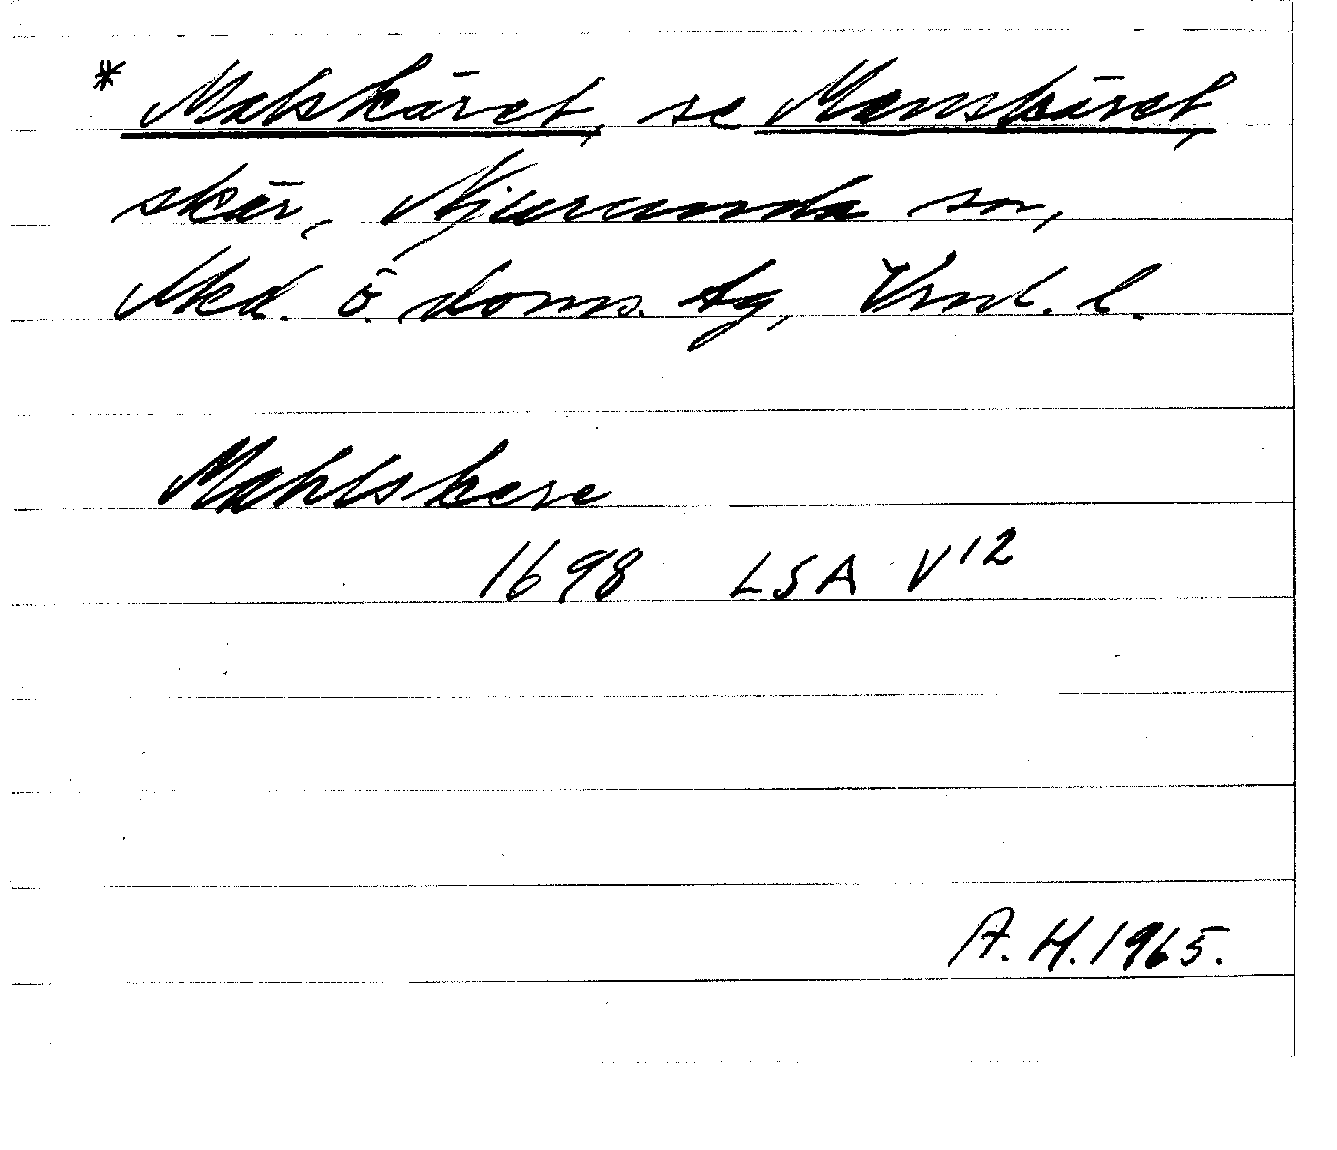 * Malskäret, se Manskäret,
skär, Njurunda sn,
Med. ö. doms. tg, Vrml. l.
Mahlskere
1698 LSA V12
A. H. 1965.